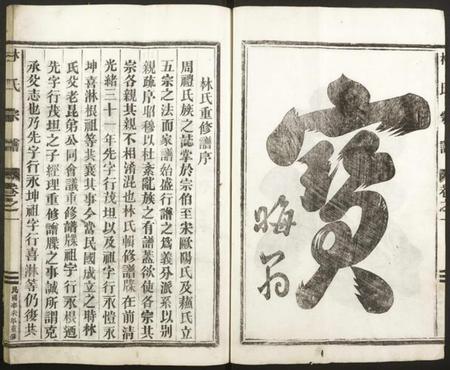 寶
晦翁
林氏重修譜序
周禮氏族之誌掌於宗伯至宋歐陽氏及蘇氏立
五宗之法而家譜始盛行譜之為義分派系以別
親疏序昭穆以杜紊亂族之有譜蓋欲使各宗其
宗各親其親不相淆混也林氏輯修譜牒在前清
光緒三十一年先字行茂坦以及祖字行永愷永
坤喜淋根祖等共襄其事今當民國成立之時林
氏父老昆弟公同會議重修譜牒祖字行永根通
先字行茂坦之子經理重修譜牒之事誠所謂克
承父志也乃先字行永坤祖字行喜淋等仍復共
林氏宗譜
卷之一
民國
重修